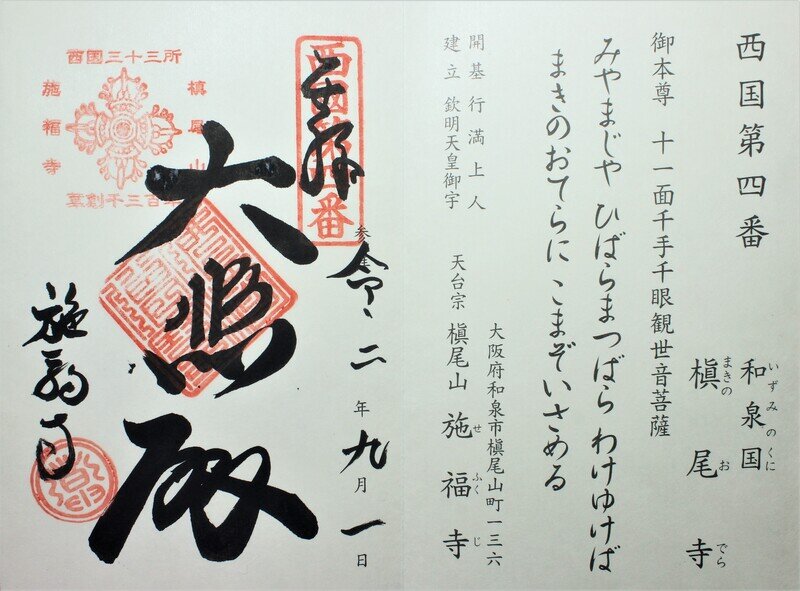 西国第四番
和泉国
いずみのくに
槇尾寺
まきのおでら
御本尊 十一面千手千眼観世音菩薩
みやまじや ひばらまつばら わけゆけば
まきのおてらに こまぞいさめる
開基 行満上人
建立 欽明天皇御宇
大阪府和泉市槇尾山町一三六
天台宗 槇尾山 施福寺
せふくじ
西國第四番
奉拝
令二年九月一日
大悲殿
施福寺
西国三十三所
槇尾山
施福寺